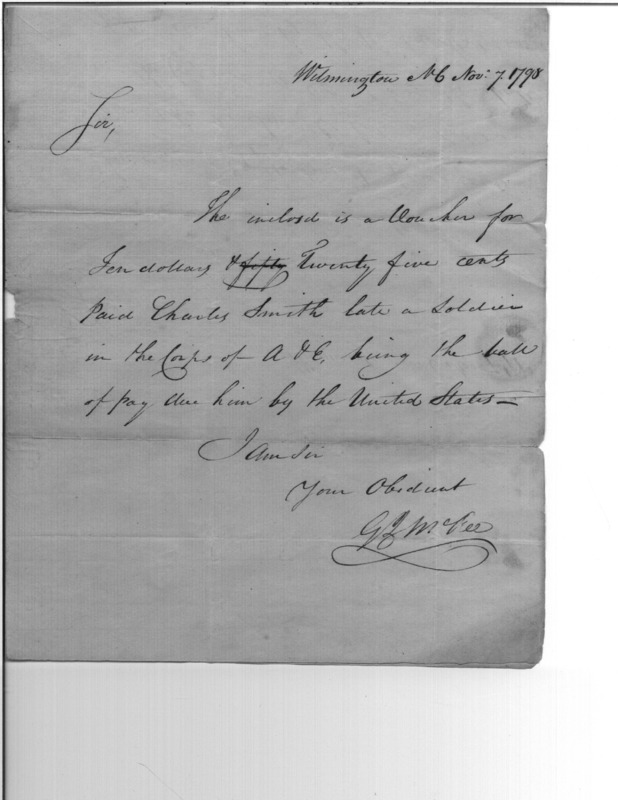 Wilmington NC Nov: 7. 1798
Sir,
The inclosd is a Voucher for
Ten dollars & fifty Twenty five cents
Paid Charles Smith late a Soldier
in the Corps of A & E, being the ball
of pay due him by the United States —
I am Sir
Your Obedient